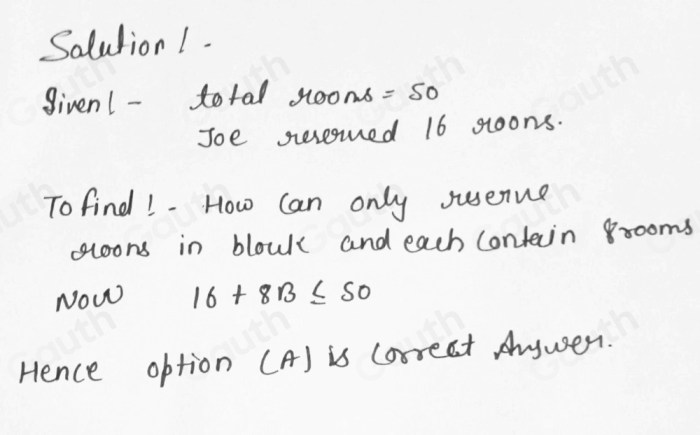 Solution ! -
Given ! - total rooms = 50
Joe reserved 16 rooms.
To find ! - How can only reserve
rooms in block and each contain 8 rooms
Now 16 + 8B ≤ 50
Hence option (A) is correct Answer.
Gauth